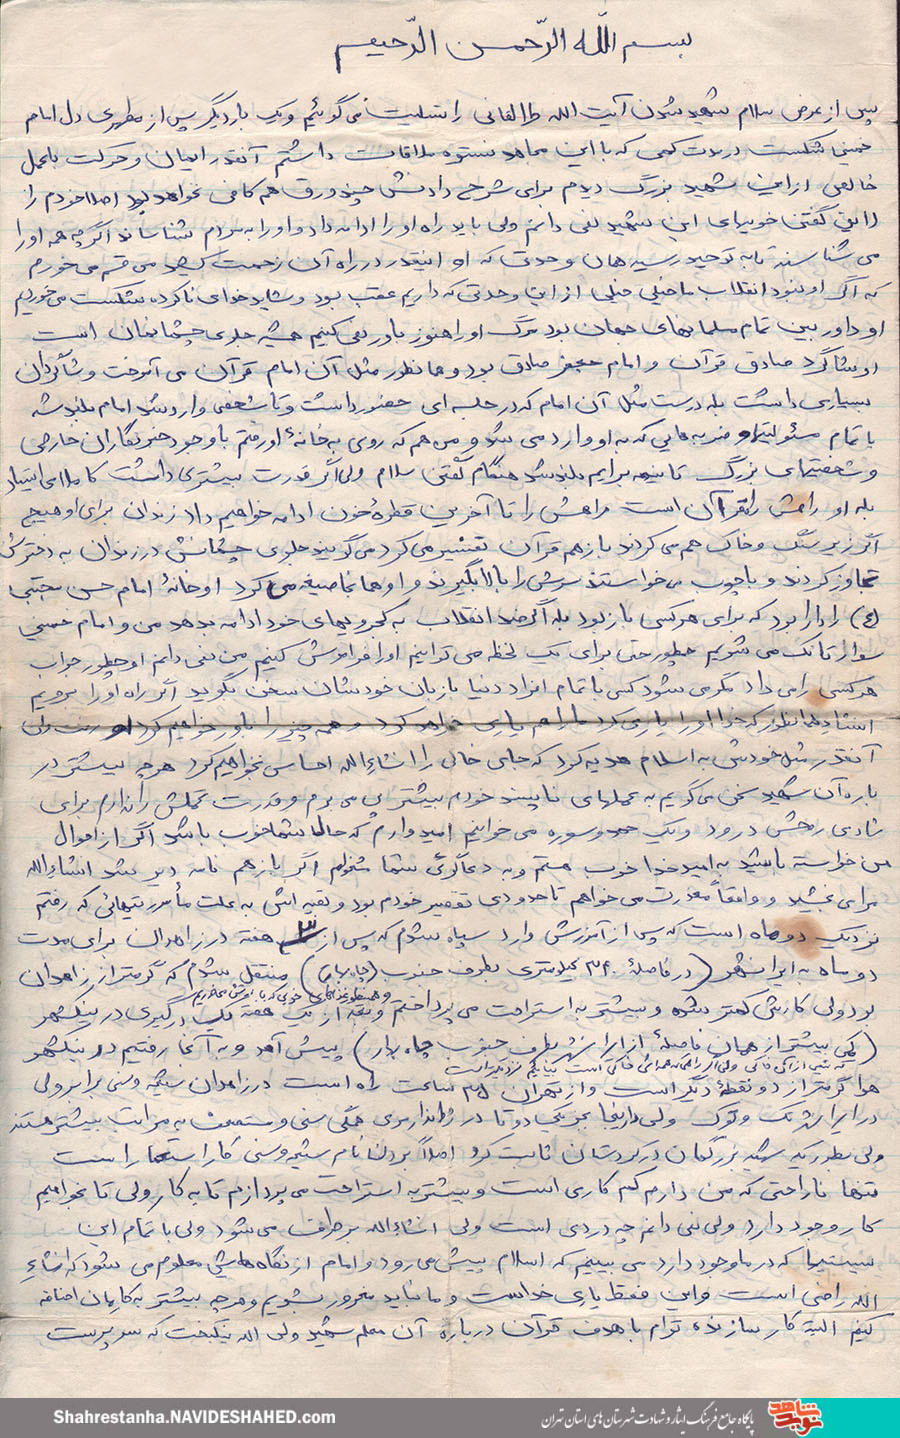 بسم الله الرّحمن الرّحیم
پس از عرض سلام شهید شدن آیت الله طالقانی را تسلیت می گوئیم و یک بار دیگر پس از مطهری دل امام
خمینی شکست در مدت کمی که با این مجاهد نستوه ملاقات داشتم آنقدر ایمان و حرکت با عمل
خالص از این شهید بزرگ دیدم برای شرح دادنش چند ورق هم کافی نخواهد بود اصلا خودم را
لایق گفتن خوبیهای این شهید نمی دانم ولی باید راه او را ادامه داد و او را به مردم شناساند اگر چه همه او را
می شناسند تا به توحید رسید همان وحدتی که او اینقدر در راه آن زحمت کشید می قسم می خورم
که اگر او نبود انقلاب ما خیلی خیلی از این وحدتی که داریم عقب بود و شاید خدای ناکرده شکست می خوردیم
او داور بین تمام مسلمانهای جهان بود مرگ او را هنوز باور نمی کنیم همیشه جلوی چشمانمان است
او شاگرد صادق قرآن و امام جعفر صادق بود و همانطور مثل آن امام قرآن می آموخت و شاگردان
بسیاری داشت بله درست مثل آن امام که در جلسه ای حضور داشت و تا شخصی وارد شد امام بلند شد
با تمام مسئولیتها و ضربه هایی که به او وارد می شد و من هم که روزی به خانهٔ او رفتم با وجود خبرنگاران خارجی
و شخصیتهای بزرگ تا نیمه برایم بلند شد هنگام گفتن سلام ولی اگر قدرت بیشتری داشت کاملا می ایستاد
بله او راهش راه قرآن است راهش را تا آخرین قطرهٔ خون ادامه خواهیم داد زندان برای او هیچ
اگر زیر سنگ و خاک هم می کردند باز هم قرآن تفسیر می کرد می گویند جلوی چشمانش در زندان به دخترش
تجاوز کردند و با چوب می خواستند سرش را بالا بگیرند و او همانجا صیغه می کرد او خانهٔ امام حسن مجتبی
(ع) را دارا بود که برای هر کسی باز بود بله اگر ضد انقلاب به کجرویهای خود ادامه بدهد من و امام خمینی
سوار تانک می شویم چطور حتی برای یک لحظه می توانیم او را فراموش کنیم من نمی دانم او چطور جواب
هر کسی را می داد مگر می شود کسی با تمام افراد دنیا با زبان خودشان سخن بگوید اگر راه او را برویم
انشاءالله همانطور که خدا او را یاری کرد ما را هم یاری خواهد کرد و همه چیز را باور خواهیم کرد او رفت ولی
آنقدر مثل خودش به اسلام هدیه کرد که جای خالی را انشاءالله احساس نخواهیم کرد هر چه بیشتر در
باره آن شهید سخن می گویم به عملهای ناپسند خودم بیشتر پی می برم و قدرت تحملش را ندارم برای
شادی روحش درود و یک حمد و سوره می خوانیم امیدوارم که حال شما خوب باشد اگر از احوال
من خواسته باشید به امید خدا خوب هستم و به دعاگوئی شما مشغولم اگر باز هم نامه دیر شد انشاءالله
مرا می بخشید و واقعاً معذرت می خواهم تا حدودی تقصیر خودم بود و بقیه اش به علت مأموریتهائی که رفتم
نزدیک دو ماه است که پس از آموزش وارد سپاه شدم که پس از ۳ هفته در زاهدان برای مدت
دو ماه به ایرانشهر (در فاصلهٔ ۳۴۰ کیلومتری بطرف جنوب (چاه بهار)) منتقل شدم که گرمتر از زاهدان
بود ولی کارش کمتر بود و بیشتر به استراحت می پرداختم و بعد از یک هفته یک درگیری در نیکشهر
(کمی بیشتر از همان فاصلهٔ از ایرانشهر بطرف جنوب چاه بهار) پیش آمد و به آنجا رفتیم در نیکشهر
هوا گرمتر از دو نقطهٔ دیگر است و از تهران ۳۵ ساعت راه است در زاهدان شیعه و سنی برابر ولی
در ایرانشهر تک و توک ولی در اینجا بجز یکی دو تا در ژاندارمری همگی سنی و مستضعف به مراتب بیشتر هستند
ولی بطوریکه شهید بزرگمان در کردستان ثابت کرد اصلاً بردن نام شیعه و سنی کار استعمار است
تنها ناراحتی که من دارم کم کاری است و بیشتر به استراحت می پردازم تا به کار ولی تا بخواهیم
کار وجود دارد ولی نمی دانم چه دردی است ولی انشاءالله برطرف می شود ولی با تمام این
سیستمها که در ما وجود دارد می بینیم که اسلام پیش می رود و امام از نگاههایش معلوم می شود که انشاء
الله راضی است و این فقط یاری خداست و ما نباید مغرور بشویم و هر چه بیشتر به کارمان اضافه
کنیم البته کار سازنده توأم با هدف قرآن درباره آن معلم شهید ولی الله نیکبخت که سرپرست
Shahrestanha.NAVIDESHAHED.com
پایگاه جامع فرهنگ ایثار و شهادت شهرستان های استان تهران
نوید شاهد